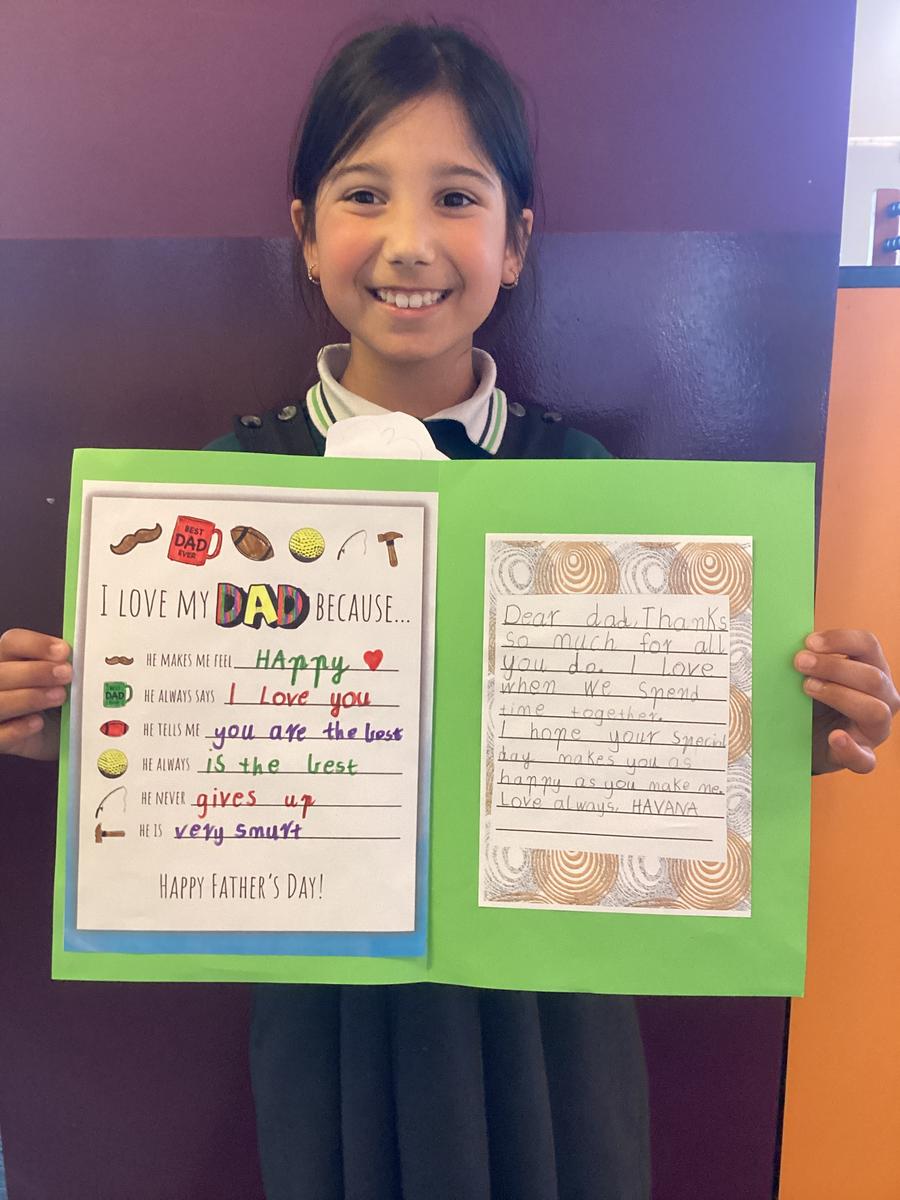 BEST
DAD
EVER
I LOVE MY DAD BECAUSE...
HE MAKES ME FEEL HAppy
BEST
DAD
HE ALWAYS SAYS I Love you
HE TELLS ME you are the best
HE ALWAYS is the best
HE NEVER gives up
HE IS very smart
HAPPY FATHER'S DAY!
Dear dad, Thanks
so much for all
you do. I love
when we spend
time together.
I hope your special
day makes you as
happy as you make me.
Love always, HAVANA